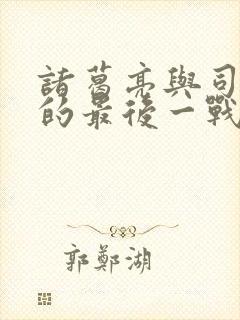 諸葛亮與司
的最後一戰
郭鄭湖